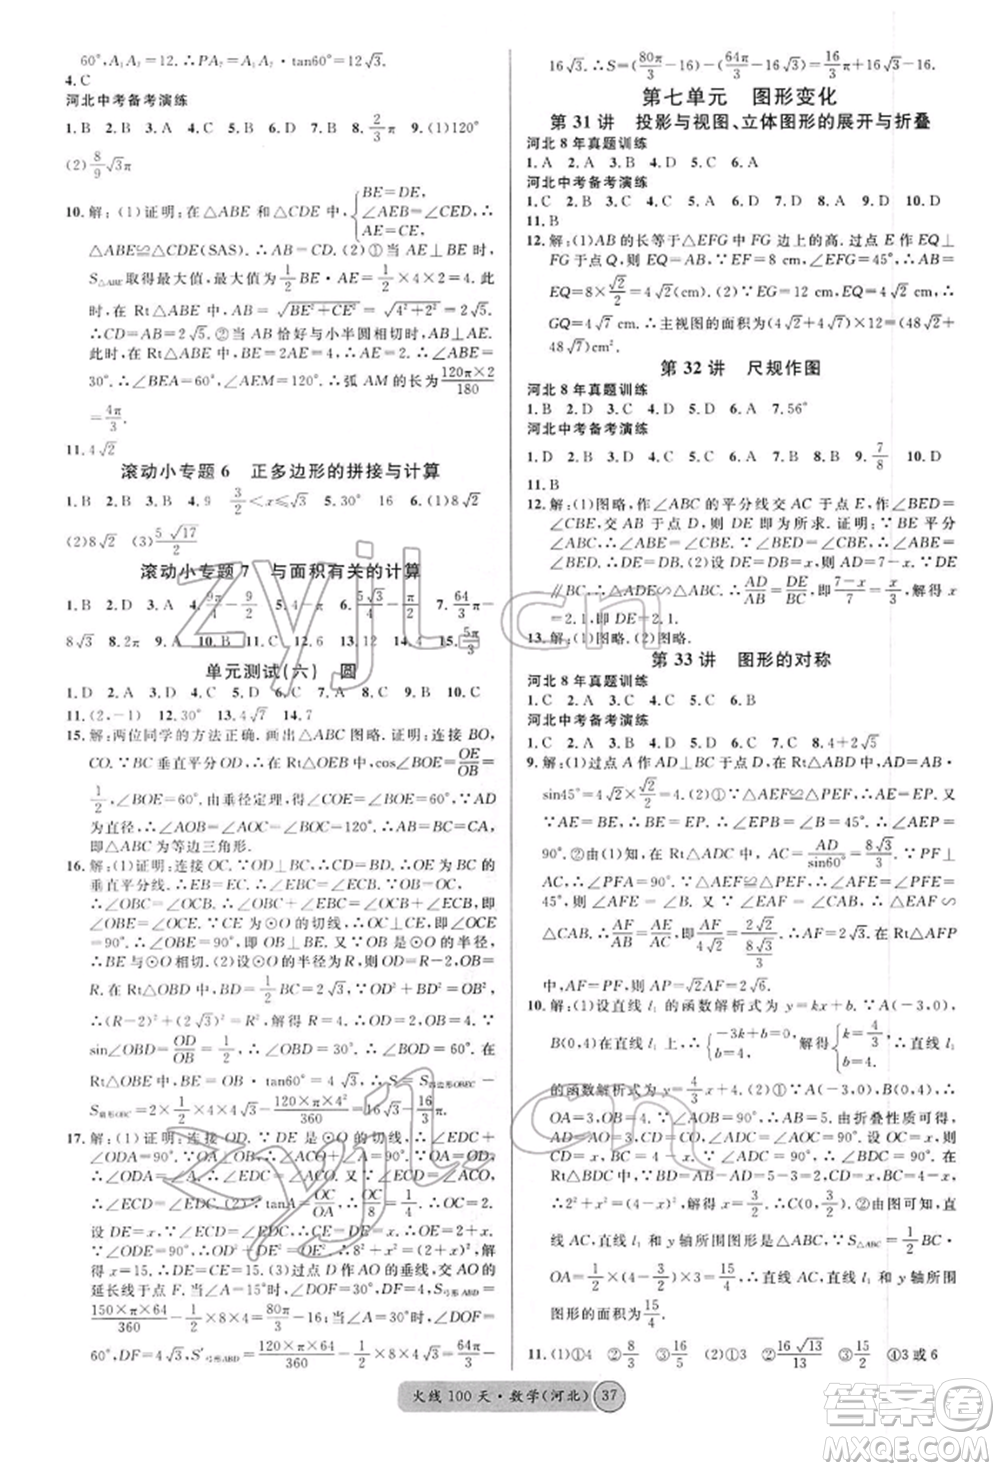 60°,A₁A₇=12.∴PA₇=A₁A₇·tan60°=12√3.
4.C
河北中考备考演练
1.B 2.D 3.B 4.A 5.A 6.D 7.B 8.2/3 9.(1)120°
(2)8/9√3π
10.解:(1)证明:在△ABE 和△CDE 中,{BE=DE,∠AEB=∠CED,AE=CE.∴
△ABE≌△CDE(SAS).∴AB=CD.(2)①当 AE⊥BE 时,
S△ABE取得最大值,最大值=1/2BE·AE=1/2×4×2=4.
∴在Rt△ABE 中,AB=√(BE²+CE²)=√(4²+2²)=2√5.
∴CD=AB=2√5.②当 AB 恰好与小半圆相切时,AB⊥ME.
∴在Rt△ABE 中,BE=2AE=4.∴∠ABE=
30°.∴∠AEB=60°,∠AEM=120°.∴弧 AM 的长=120π×2/180
=4π/3.
11.4√2
滚动小专题 6 正多边形的拼接与计算
1.B 2.B 3.A 4.9 3/2<x≤√3 5.30° 16 6.(1)8√2
(2)8√2 (3)5√17/2
滚动小专题 7 与面积有关的计算
8√3 8.2π 9.A 10.B 11.A 12.6 13.12 14.4 15.5√3/3
单元测试(六) 圆
1.D 2.A 3.D 4.C 5.D 6.C 7.D 8.D 9.B 10.C
11.(2,-1) 12.30° 13.4√7 14.7
15.解:两位同学的方法正确.画出△ABC 图略.证明:连接 BO,
CO.∵BC 垂直平分 OD,∴在 Rt△OEB 中,cos∠BOE=OE/OB=
1/2,∴∠BOE=60°.由垂径定理,得∠COE=∠BOE=60°.∵AD
为直径,∴∠AOB=∠AOC=∠BOC=120°.∴AB=BC=CA,
即△ABC 为等边三角形.
16.解:(1)证明:连接 OC.∵OD⊥BC,∴OE 是 BC 的
垂直平分线.∴EB=EC.∴∠EBC=∠ECB.∵OB=OC,
∴∠OBC=∠OCB.∴∠OBC+∠EBC=∠OCB+∠ECB,即
∠OBE=∠OCE.∵CE 为⊙O 的切线,∴OC⊥CE,即∠OCE
=90°.∴∠OBE=90°,即 OB⊥BE.∵OB 是⊙O 的半径,
∴BE 与⊙O 相切.(2)设⊙O 的半径为 R,则 OD=R-2,OB=
R.在Rt△OBD 中,BD=1/2BC=2√3.∵OD²+BD²=OB²,
∴(R-2)²+(2√3)²=R²,解得 R=4.∴OD=2,OB=4.∵
sin∠OBD=OD/OB=1/2,∴∠OBD=30°,∴∠BOD=60°.∴在
Rt△OBE 中,BE=OB·tan60°=4√3.∴S阴影=S四边形OBEC-
S扇形OBC=2×1/2×4×4√3-120×π×4²/360=16√3-16/3π.
17.解:(1)证明:连接 OD.∵DE 是⊙O 的切线,∴∠EDC+
∠ODA=90°.∵OC⊥OA,∴∠ACO+∠A=90°.∵OA=OD,
∴∠ODA=∠A.∴∠EDC=∠ACO.又∵∠ECD=∠ACO,
∴∠ECD=∠EDC.(2)∵tanA=OC/OA,∴OC/8=1/4.∴OC=2.
设 DE=x,∵∠ECD=∠EDC,∴CE=DE=x.∴OE=2+x.
∵∠ODE=90°,∴OD²+DE²=OE²,即8²+x²=(2+x)²,解
得 x=15.∴DE=CE=15.(3)过点 D 作 AO 的垂线,交 AO 的
延长线于点 F.当∠A=15°时,∠DOF=30°,DF=4,S弓形ABD=
150×π×64/360-1/2×8×4=80π/3-16;当∠A=30°时,∠DOF=
60°,DF=4√3,S′弓形ABD=120×π×64/360-1/2×8×4√3=64π/3-
16√3.∴S=(80π/3-16)-(64π/3-16√3)=16/3π+16√3-16.
第七单元 图形变化
第 31 讲 投影与视图、立体图形的展开与折叠
河北 8 年真题训练
1.A 2.A 3.D 4.C 5.C 6.A
河北中考备考演练
1.C 2.C 3.B 4.B 5.B 6.A 7.A 8.D 9.B 10.D
11.B
12.解:(1)AB 的长等于△EFG 中 FG 边上的高.过点 E 作 EQ⊥
FG 于点 Q,则EQ=AB.∵EF=8,∠EFG=45°,∴AB=
EQ=8×√2/2=4√2(cm).(2)∵EG=12 cm,EQ=4√2 cm,∴
GQ=4√7 cm.∴主视图的面积为(4√2+4√7)×12=(48√2
+48√7)cm².
第 32 讲 尺规作图
河北 8 年真题训练
1.B 2.D 3.C 4.D 5.D 6.A 7.56°
河北中考备考演练
1.D 2.B 3.D 4.D 5.B 6.C 7.D 8.B 9.7/8 10.D
11.B
12.解:(1)图略,作∠ABC 的平分线交 AC 于点 E,作∠BED=
∠CBE,交 AB 于点 D,DE 即为所求.证明:∵BE 平分
∠ABC,∴∠ABE=∠CBE.∵∠BED=∠CBE,∴DE
∥BC.(2)设DE=x,则AD=7-x.∵DE∥BC,∴AD/AB=DE/BC,即(7-x)/7=x/3,解得x
=2.1,∴DE=2.1.
13.解:(1)图略.(2)图略.
第 33 讲 图形的对称
河北 8 年真题训练
1.D 2.A 3.D 4.C 5.C 6.B
河北中考备考演练
1.C 2.C 3.C 4.A 5.C 6.D 7.A 8.4+2√5
9.解:(1)过点 A 作 AD⊥BC 于点 D.在 Rt△ABD 中,AD=AB·
sin45°=4√2×√2/2=4.(2)①∵△AEF≌△PEF,∴AE=EP.又
∵AE=BE,∴BE=EP.∴∠EPB=∠B=45°,∴∠AEP=
90°.②由(1)可知,在 Rt△ADC 中,AC=AD/sin60°=8√3/3.∵PF⊥AC,
∴∠PFA=90°.∵△AEF≌△PEF,∴∠AFE=∠PFE=
45°,∴∠AFE=∠B.又∵∠EAF=∠CAB,∴△EAF∽
△CAB.∴AF/AB=AE/AC,即AF/4√2=2√2/(8√3/3).∴AF=2√3.在Rt△AFP
中,AF=PF,∴AP=√2AF=2√6.
10.解:(1)设直线 l₁的函数解析式为 y=kx+b.∵A(-3,0),
B(0,4)在直线 l₁上,∴{-3k+b=0,b=4.解得{k=4/3,b=4.∴直线 l₁
的函数解析式为 y=4/3x+4.(2)①∵A(-3,0),B(0,4),∴
OA=3,OB=4.∵∠AOB=90°,∴AB=5.由折叠性质可得,
∠BDC=∠AOC=90°,CD=OC,AD=OA=3,∴BD=2.
在Rt△BDC 中,∠BDC=90°,设CD=x,则BC=4-x,
∴2²+x²=(4-x)²,解得 x=3/2,∴C(0,3/2).②设直
线 l₂与 x 轴、y 轴所围图形的面积为S,∵S△ABC=1/2BC·
OA=1/2×5/2×3=15/4.∴直线 AC,直线 AB 和 y 轴所围
图形的面积为15/4.
11.(1)①3 ②8/3 ③16/5 (2)①3 ②12√13/13 ③16/5 ④3 或 6
火线 100 天·数学(河北) 37
答案圈
MXQE.COM
zyjl.cn
zyjl.cn